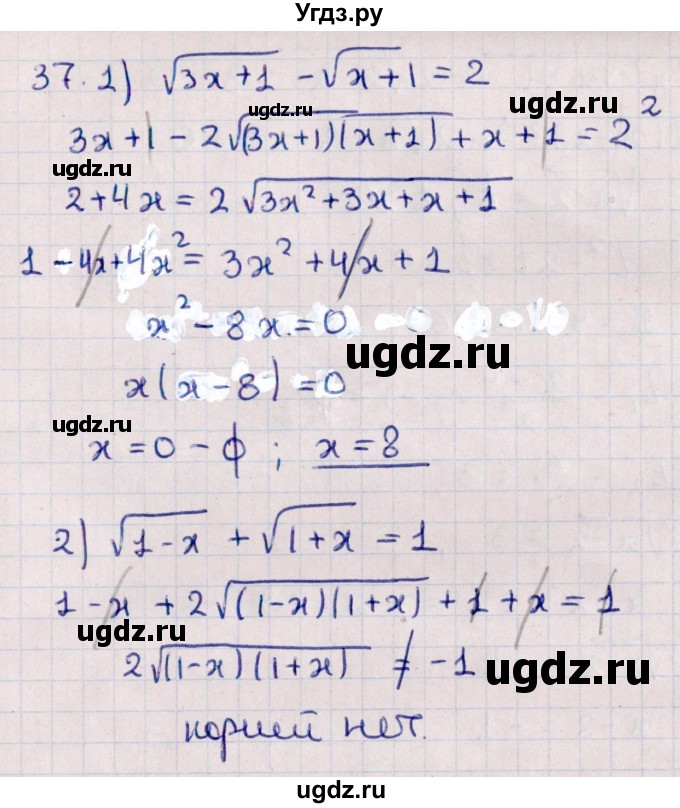 Угдз.ру
37. 1) √(3x+1) - √(x+1) = 2
ugdz.ru
3x+1 - 2√((3x+1)(x+1)) + x + 1 = 2²
ugdz.ru
2+4x = 2√(3x²+3x+x+1)
ugdz.ru
1 - 4x + 4x² = 3x² + 4x + 1
x² - 8x = 0
ugdz.ru
x(x-8) = 0
ugdz.ru
x = 0 - ф ; x = 8
2) √(1-x) + √(1+x) = 1
ugdz.ru
1 - x + 2√((1-x)(1+x)) + 1 + x = 1
ugdz.ru
2√((1-x)(1+x)) ≠ -1
ugdz.ru
корней нет.
ugdz.ru